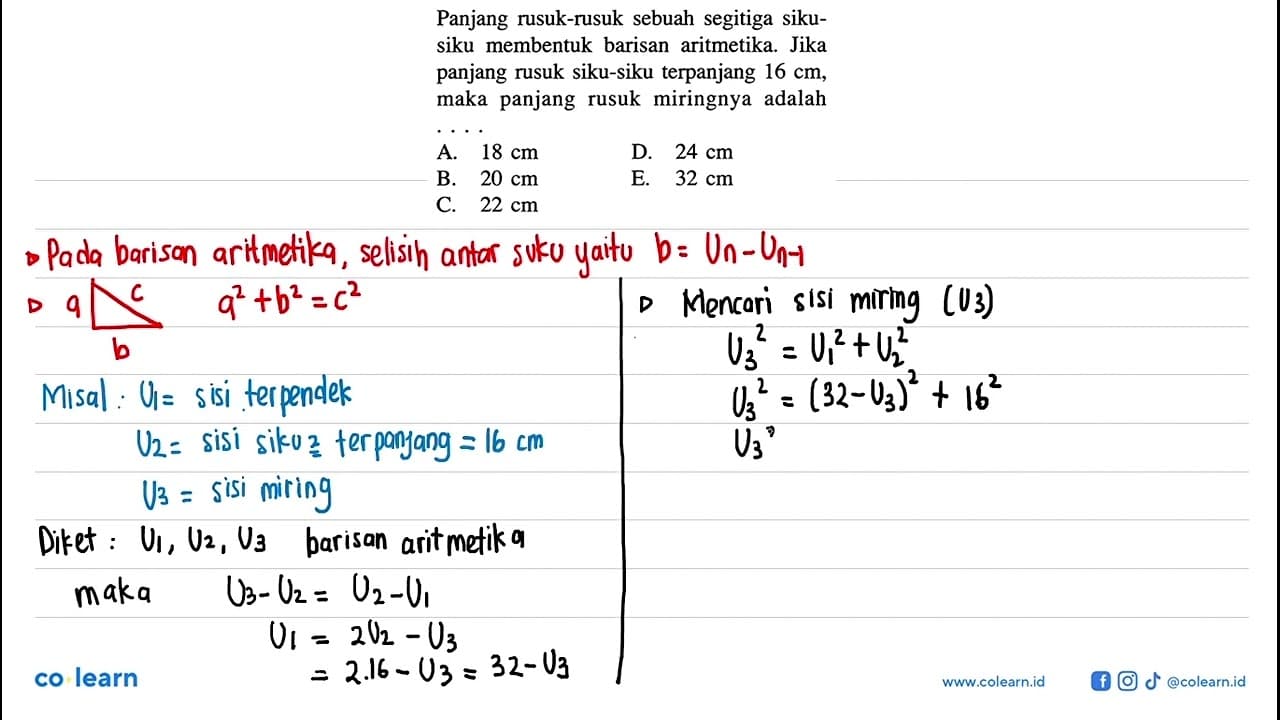 Panjang rusuk-rusuk sebuah segitiga siku-
siku membentuk barisan aritmetika. Jika
panjang rusuk siku-siku terpanjang 16 cm,
maka panjang rusuk miringnya adalah
. . . .
A. 18 cm D. 24 cm
B. 20 cm E. 32 cm
C. 22 cm
Pada barisan aritmetika, selisih antar suku yaitu b = Un - Un-1
a c a² + b² = c²
b
Misal : U1 = sisi terpendek
U2 = sisi siku2 terpanjang = 16 cm
U3 = sisi miring
Diket : U1, U2, U3 barisan aritmetika
maka U3 - U2 = U2 - U1
U1 = 2U2 - U3
= 2.16 - U3 = 32 - U3
Mencari sisi miring (U3)
U3² = U1² + U2²
U3² = (32 - U3)² + 16²
U3²
co learn
www.colearn.id
@colearn.id